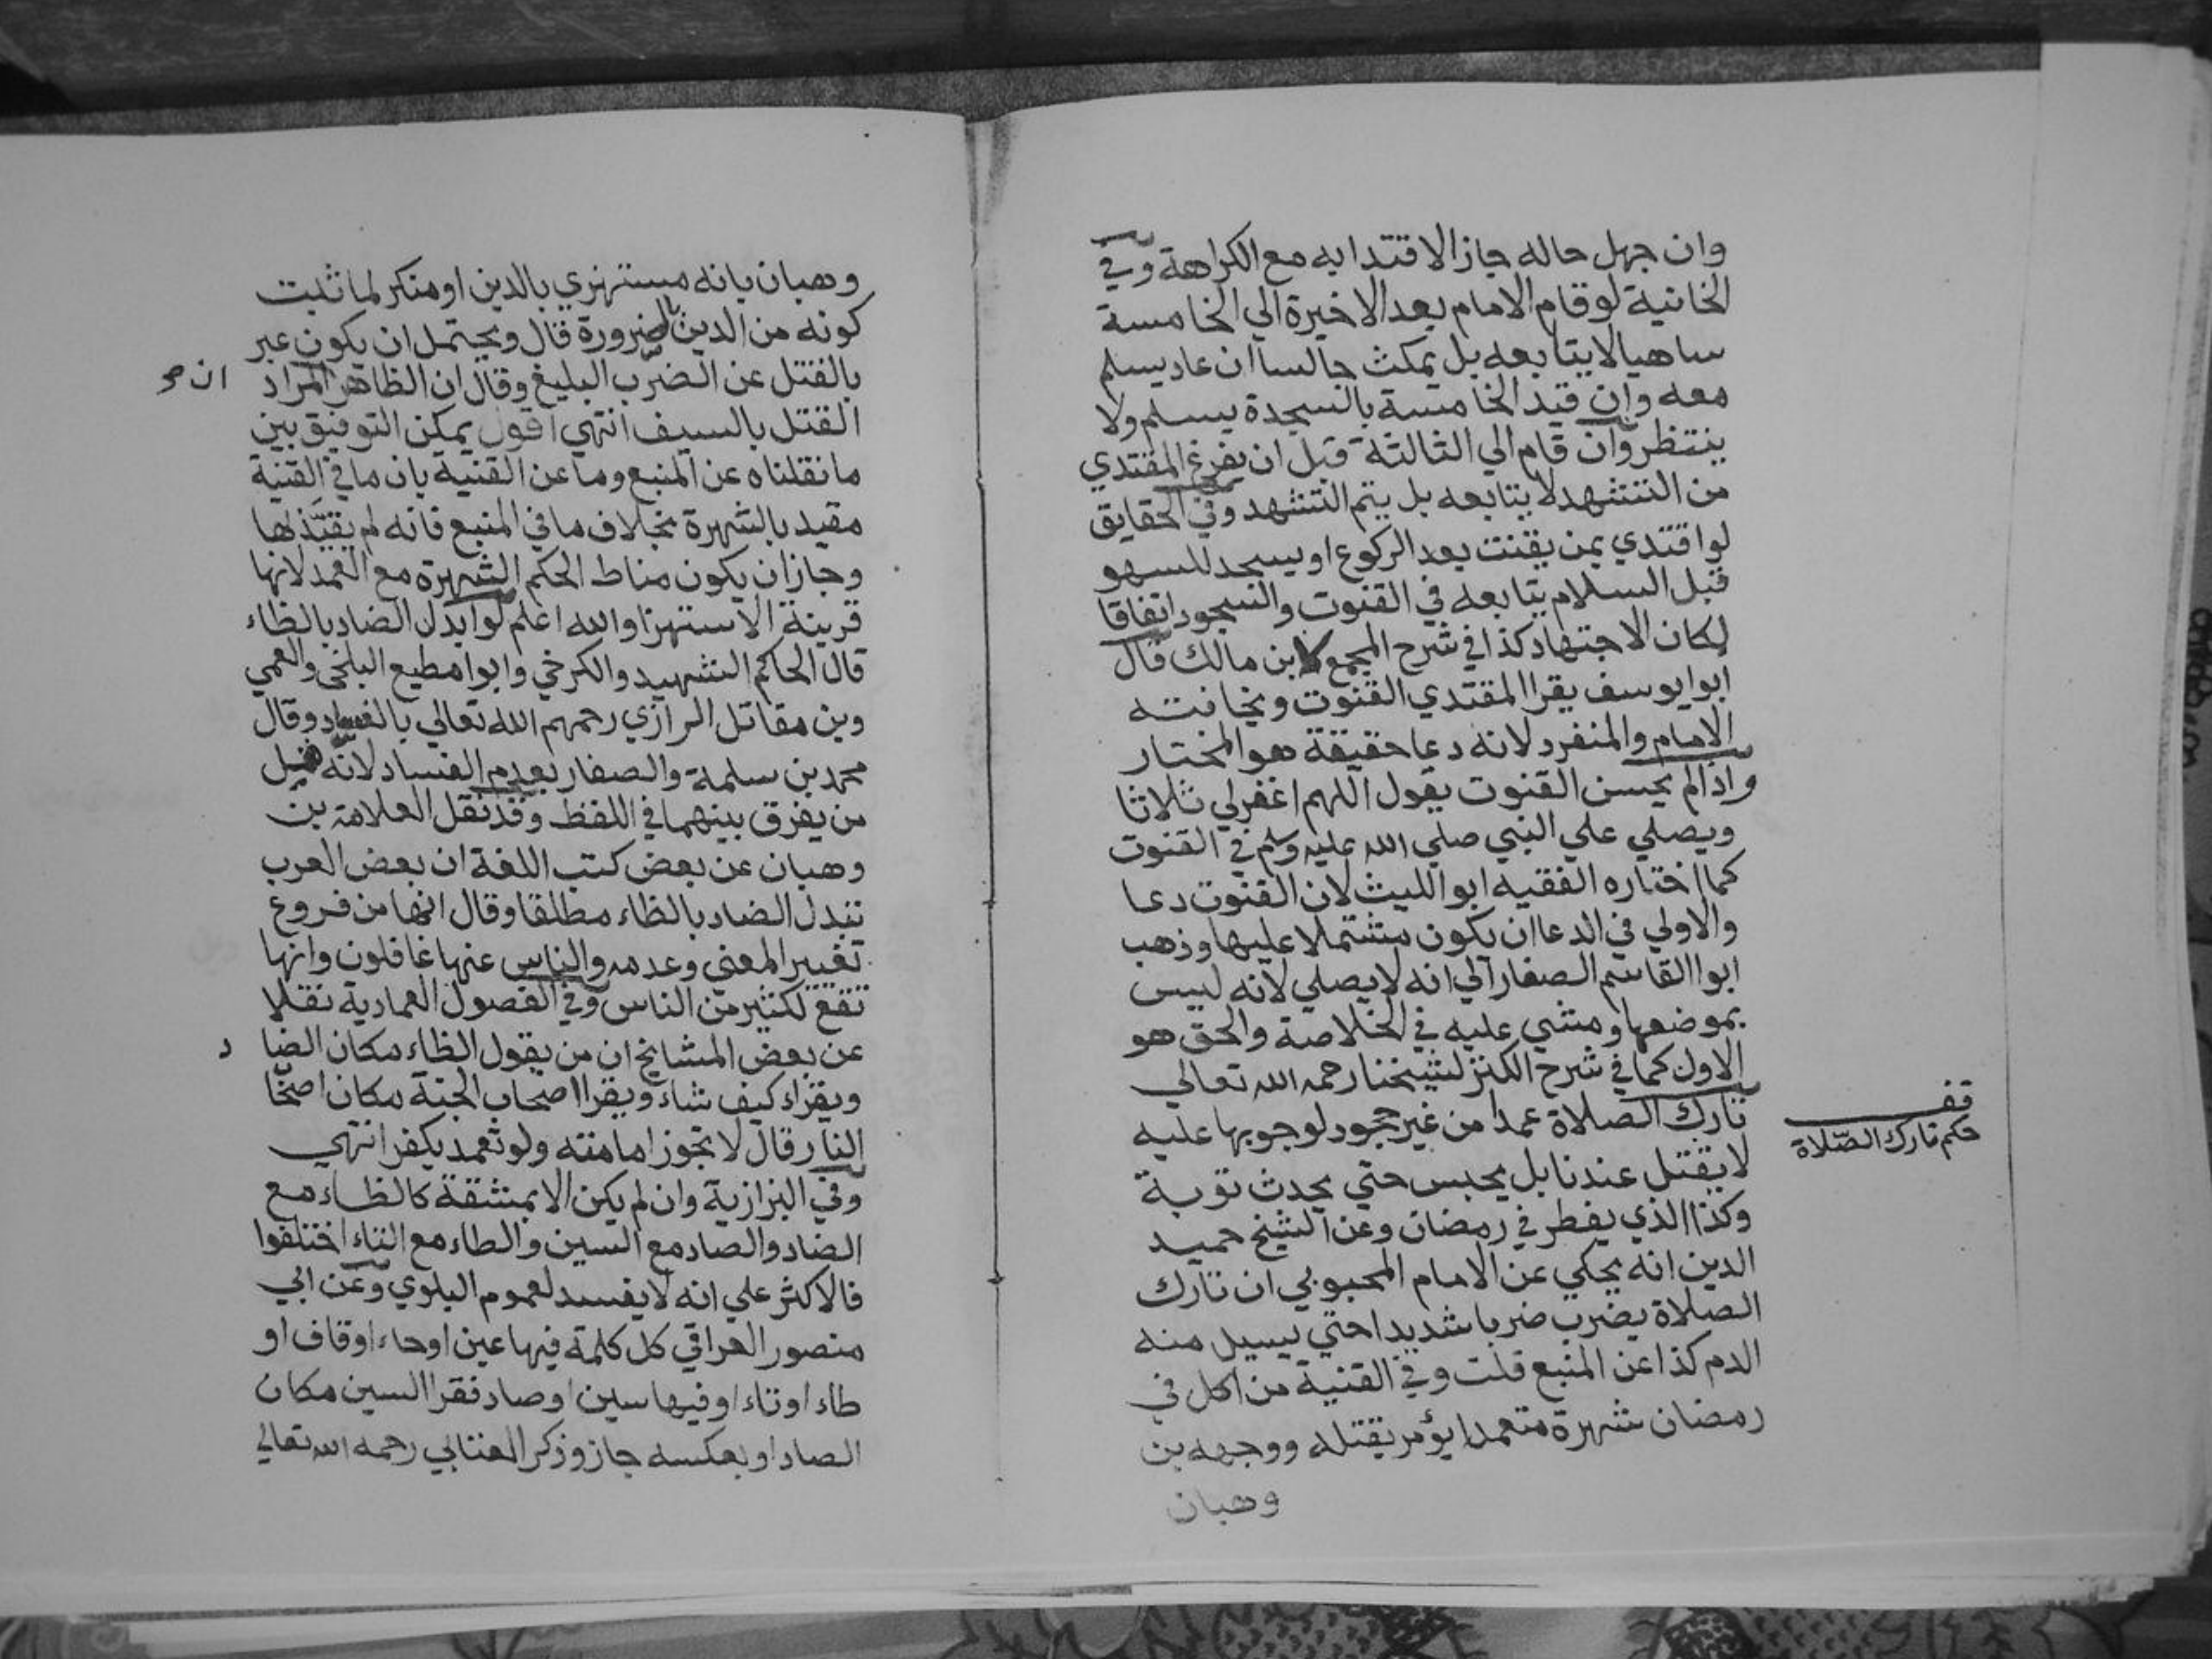 وان جهل حاله جاز الاقتدا به مع الكراهة وفي
الخانية لو قام الامام بعد الاخيرة الي الخامسة
ساهيا لا يتابعه بل يمكث جالسا ان عاد يسلم
معه وان قيد الخامسة بالسجدة يسلم ولا
ينتظر وان قام الي الثالثة قبل ان يفرغ المقتدي
من التشهد لا يتابعه بل يتم التشهد وفي الحقايق
لو اقتدي بمن يقنت بعد الركوع او يسجد للسهو
قبل السلام يتابعه في القنوت والسجود اتفاقا
لكان الاجتهاد كذا في شرح المجمع لابن مالك قال
ابوا يوسف يقرا المقتدي القنوت ويخافته
الامام والمنفرد لانه دعا حقيقة هو المختار
واذا لم يحسن القنوت يقول اللهم اغفر لي ثلاثا
ويصلي علي النبي صلي الله عليه وسلم في القنوت
كما اختاره الفقيه ابو الليث لان القنوت دعا
والاولي في الدعا ان يكون مشتملا عليها وذهب
ابوا القاسم الصفار الي انه لا يصلي لانه ليس
بموضعها ومشي عليه في الخلاصة والحق هو
الاول كما في شرح الكنز لشيخنا رحمه الله تعالي
تارك الصلاة عمدا من غير جحود لوجوبها عليه
قف
حكم تارك الصّلاة
لا يقتل عندنا بل يحبس حتي يحدث توبة
وكذا الذي يفطر في رمضان وعن الشيخ حميد
الدين انه يحكي عن الامام المحبوبي ان تارك
الصلاة يضرب ضربا شديدا حتي يسيل منه
الدم كذا عن المنبع قلت وفي القنية من اكل في
رمضان شهرة متعمدا يؤمر بقتله ووجهه بن
وهبان
وهبان بانه مستهزي بالدين او منكر لما ثبت
كونه من الدين بالضرورة قال ويحتمل ان يكون عبر
بالقتل عن الضرب البليغ وقال ان الظاهر المراد
القتل بالسيف انتهي اقول يمكن التوفيق بين
ما نقلناه عن المنبع وما عن القنية بان ما في القنية
مقيد بالشهرة بخلاف ما في المنبع فانه لم يقيّد لها
وجاز ان يكون مناط الحكم الشهرة مع العمد لانها
قرينة الاستهزا والله اعلم لو ابدل الضاد بالظاء
قال الحاكم الشهيد والكرخي وابوا مطيع البلخي والعمي
وبن مقاتل الرازي رحمهم الله تعالي بالفساد وقال
محمد بن سلمة والصفار بعدم الفساد لانه قيل
من يفرق بينهما في اللفظ وقد نقل العلامة بن
وهبان عن بعض كتب اللغة ان بعض العرب
تبدل الضاد بالظاء مطلقا وقال انها من فروع
تغيير المعني وعدمه والناس عنها غافلون وانها
تقع لكثير من الناس وفي الفصول العمادية نقلا
عن بعض المشايخ ان من يقول الظاء مكان الضا د
ويقراء كيف شاء ويقرا اصحاب الجنة مكان اصحا
النار قال لا تجوز امامته ولو تعمد يكفر انتهي
وفي البزازية وان لم يكن الا بمشقة كالظاء مع
الضاد والصاد مع السين والطاء مع التاء اختلفوا
فالاكثر علي انه لا يفسد لعموم البلوي وعن ابي
منصور العراقي كل كلمة فيها عين او حاء او قاف او
طاء او تاء او فيها سين او صاد فقرا السين مكان
الصاد او بعكسه جاز وذكر العتابي رحمه الله تعالي